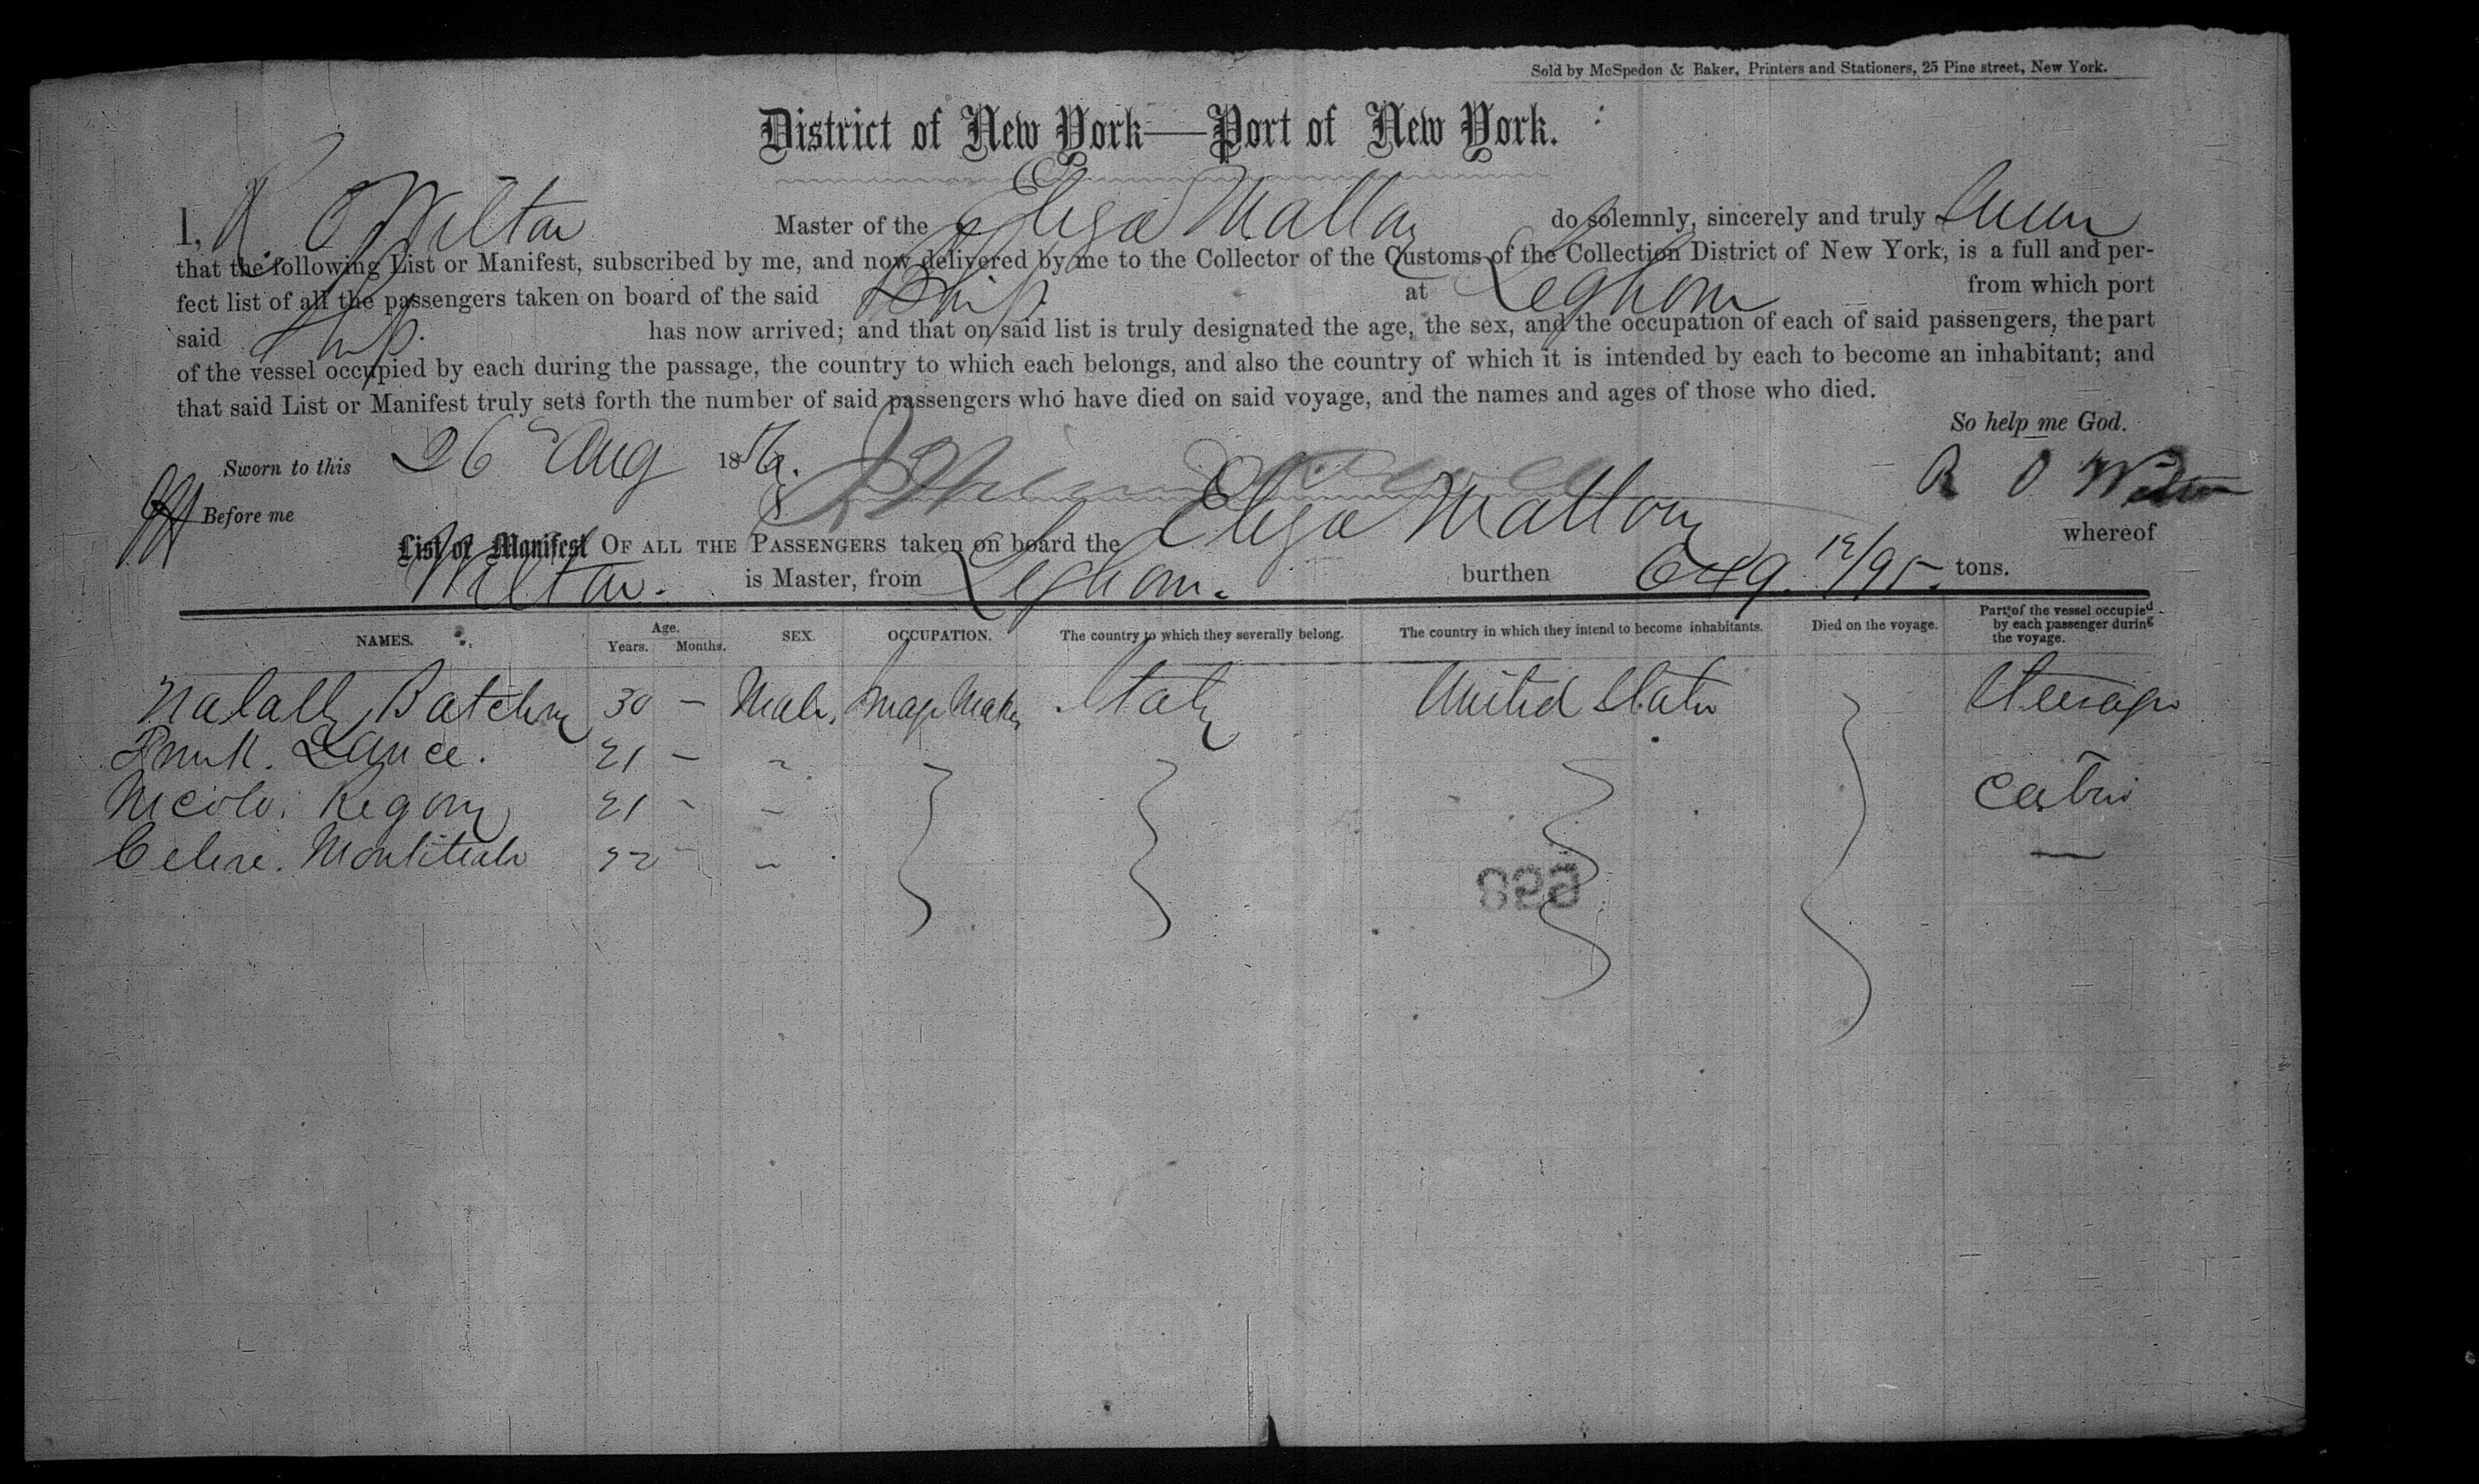 Sold by McSpedon & Baker, Printers and Stationers, 25 Pine street, New York.
District of New York—Port of New York.
I, R. O Wilton Master of the Eliza Mallory do solemnly, sincerely and truly Swear
that the following List or Manifest, subscribed by me, and now delivered by me to the Collector of the Customs of the Collection District of New York, is a full and per-
fect list of all the passengers taken on board of the said Ship at Leghorn from which port
said Ship. has now arrived; and that on said list is truly designated the age, the sex, and the occupation of each of said passengers, the part
of the vessel occupied by each during the passage, the country to which each belongs, and also the country of which it is intended by each to become an inhabitant; and
that said List or Manifest truly sets forth the number of said passengers who have died on said voyage, and the names and ages of those who died.
So help me God.
Sworn to this 26 Aug 18
R O Wilton
Before me
List or Manifest OF ALL THE PASSENGERS taken on board the Eliza Mallory whereof
Wilton. is Master, from Leghorn. burthen 649. 12/95. tons.
NAMES. Age. Years. Months. SEX. OCCUPATION. The country to which they severally belong. The country in which they intend to become inhabitants. Died on the voyage. Part of the vessel occupied by each passenger during the voyage.
30 – Male, Map Maker Italy United States Steerage
21 –
Nicolo. 21 - – Cabin